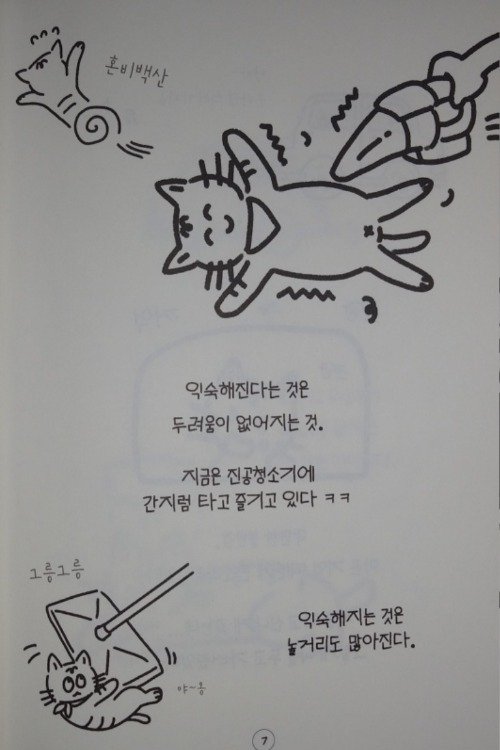 혼비백산
익숙해진다는 것은
두려움이 없어지는 것.
지금은 진공청소기에
간지럼 타고 즐기고 있다 ㅋㅋ
그릉그릉
익숙해지는 것은
놀거리도 많아진다.
야~옹
7